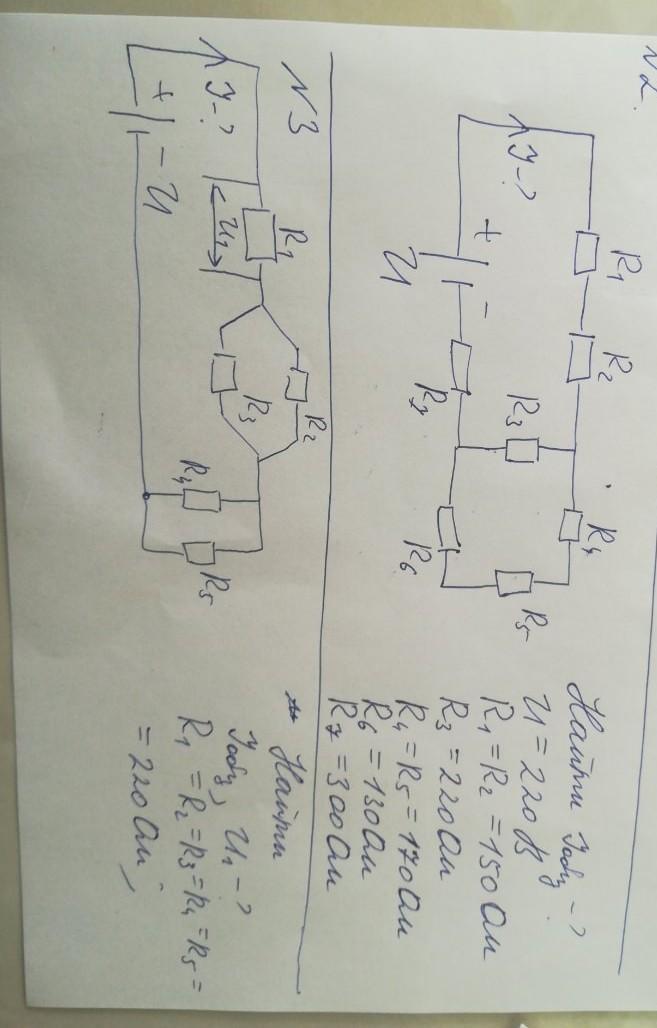 N2.
R1
R2
J-?
R3
R4
R5
R6
R7
+
-
U
Найти Jобщ-?
U = 220 В
R1 = R2 = 150 Ом
R3 = 220 Ом
R4 = R5 = 170 Ом
R6 = 130 Ом
R7 = 300 Ом
N3
J-?
R1
U1
R2
R3
R4
R5
+
- U
Найти
Jобщ, U1-?
R1 = R2 = R3 = R4 = R5 =
= 220 Ом